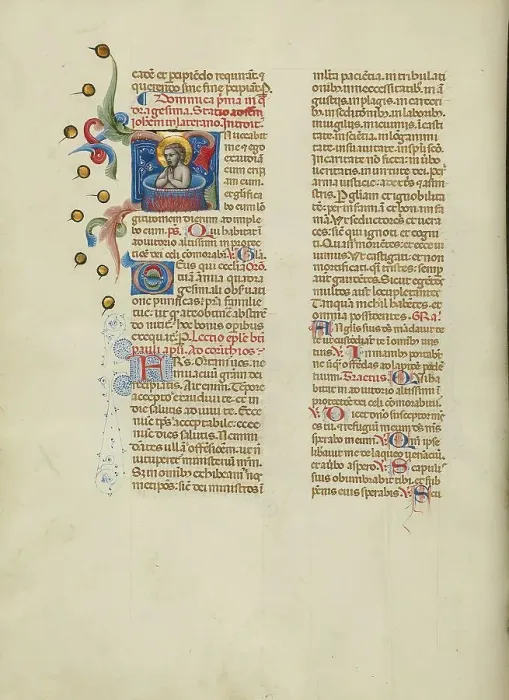 querendo sine fine percipiat. P.
Dominica prima in q̄
dragesima. Statio ad scm̄
iohem in laterano. Introit.
Nuocabit
me ⁊ ego
exaudiā
eum erip
iam eum.
⁊ glifica
bo eum lō
gitudinem dierum adimple
bo eum. ps̄. Qui habitat ī
adiutorio altissimi in protec
tiōe dei celi comorabit̄. V. Glā.
Deus qui ecclā Orō.
tuā annua quadra
gesimali obseruati
one purificas: p̄ra familie
tue: ut
bonis opibus
exequat̄. P. Lectio eple bti
pauli apli. Ad corinthios.
Frs. Ortamur uos. ne
in uacuū grām dei
recipiatis. Ait enim. Tempore
accepto exaudiui te. et in
die salutis adiuui te. Ecce
nunc tps acceptabile: ecce
nunc dies salutis. Nemini
dātes ullā offensionem. ut ñ
uituperet̄ ministeriū nr̄m.
Sz in omnibz exhibeam̄ nos
met ipos: sic̄ dei ministros ī
multa paciētia. in tribulati
onibz in necessitatibz. in ā
gustijs. in plagis. in carceri
bz. in seditionibz. in laboribz.
in uigilijs. in ieiunijs. ī casti
tate. in sciētia. in loganimi
tate. in suauitate. in spū scō.
In caritate nō ficta: in ūbo
ueritatis. in uirtute dei. per
arma iusticie: a dextris ⁊ a sini
stris. P gliam et ignobilita
tē: per infamiā et bonam fa
mā. Vt seductores et uera
ces: sic̄ qui ignoti et cogni
ti. Quasi moriētes: et ecce ui
uimus. Vt castigati. et non
mortificati. qsi tristes: semp̄
aut̄ gaudētes. Sicut egētes:
multos aut̄ locupletantes.
Tamquā nichil habētes. et
omnia possidentes. GRA.
Angelis suis dš mādauit de
te ut custodiāt te in omibz uijs
tuis. V. In manibz portabūt
te: ne ūq̄ offēdas ad lapidē pedē
tuum. Tractus. Qui ha
bitat in adiutorio altissimi ī
protectōe dei celi comorabitur.
V. Dicet dn̄o susceptor me9
es tu. ⁊ refugiū meum ds ms̄
sperabo in eum. V. Qm̄ ipse
liberauit me de laqueo uenātiū.
et a ūbo aspero. V. Scapulis
suis obumbrabit tibi. et sub
pēnis eius sperabis. V. Scu